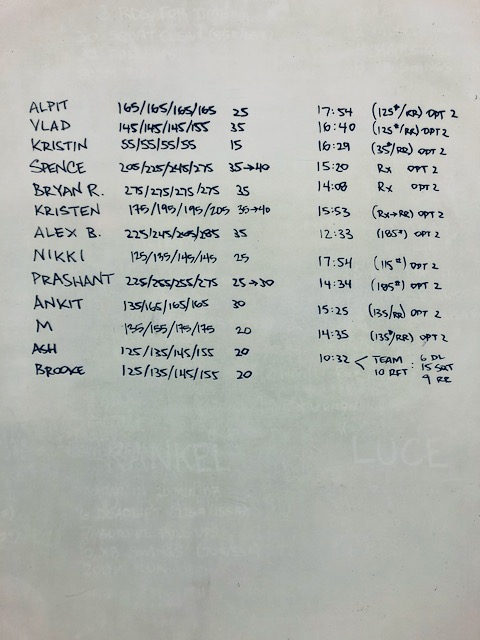 ALPIT 165/165/165/165 25 17:54 (125#/RR) OPT 2
VLAD 145/145/145/155 35 16:40 (125#/RR) OPT 2
KRISTIN 55/55/55/55 15 16:29 (35#/RR) OPT 2
SPENCE 205/225/245/275 35→40 15:20 Rx OPT 2
BRYAN R. 275/275/275/275 35 14:08 Rx OPT 2
KRISTEN 175/195/195/205 35→40 15:53 (Rx→RR) OPT 2
ALEX B. 225/245/265/285 35 12:33 (185#) OPT 2
NIKKI 125/135/145/145 25 17:54 (115#) OPT 2
PRASHANT 225/255/255/275 25→30 14:34 (185#) OPT 2
ANKIT 135/165/165/165 30 15:25 (135/RR) OPT 2
M 135/155/175/175 20 14:35 (135#/RR) OPT 2
ASH 125/135/145/155 20 10:32 < TEAM 6 DL
10 RFT : 15 SQT
BROOKE 125/135/145/155 20 9 RR
RANKEL LUCE